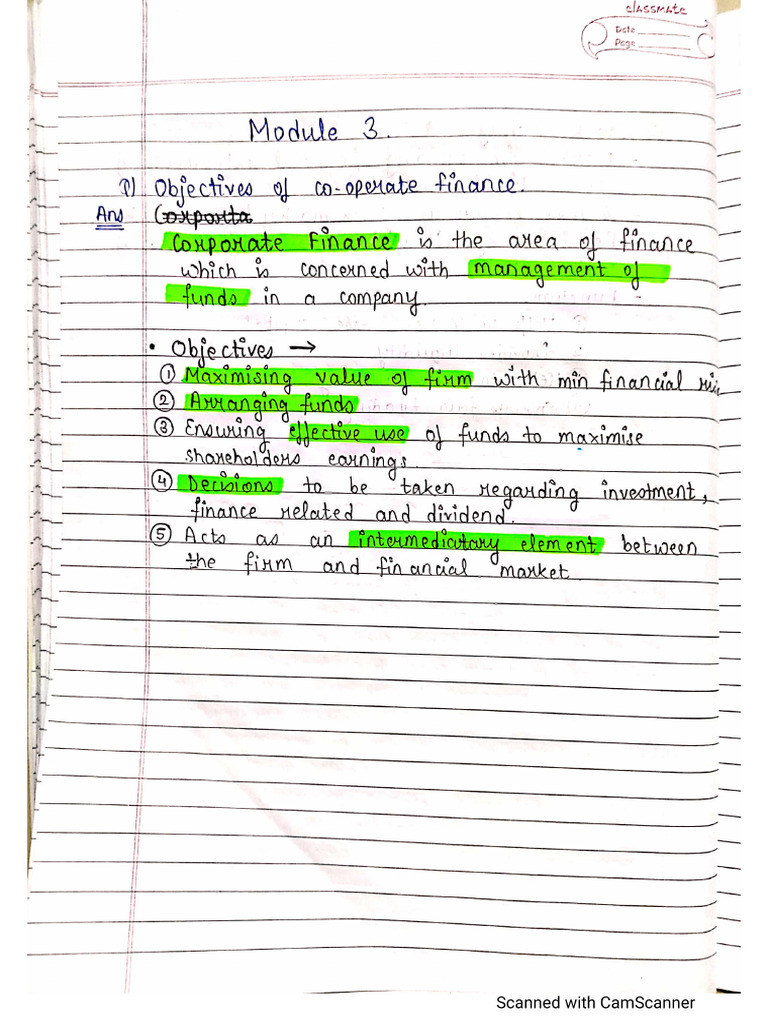 classmate
Date
Page
Module 3.
1) Objectives of co-operate finance.
Ans Corporta
Corporate Finance is the area of finance
which is concerned with management of
funds in a company.
• Objectives →
① Maximising value of firm with min financial
② Arranging funds
③ Ensuring effective use of funds to maximise
shareholders earnings.
④ Decisions to be taken regarding investment,
finance related and dividend.
⑤ Acts as an intermediatary element between
the firm and financial market.
Scanned with CamScanner